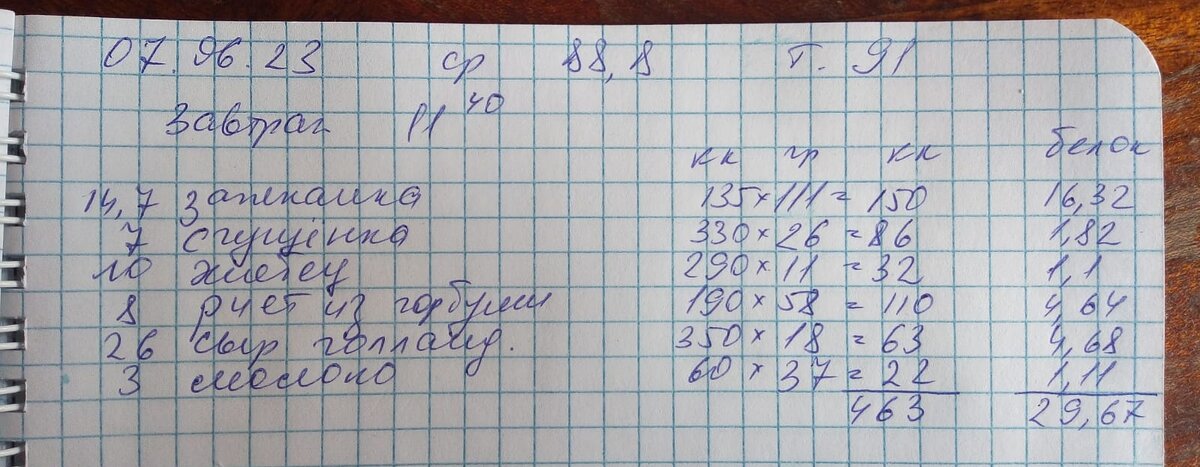 07.06.23 ср 88,8 Т. 91
Завтрак 11⁴⁰
кк гр кк белок
14,7 запеканка 135 × 111 = 150 16,32
7 сгущёнка 330 × 26 = 86 1,82
10 хлебец 290 × 11 = 32 1,1
8 рулет из горбуши 190 × 58 = 110 4,64
26 сыр голланд. 350 × 18 = 63 4,68
3 молоко 60 × 37 = 22 1,11
463 29,67